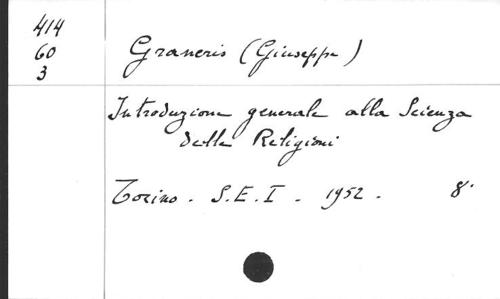 414
60
3
Graneris (Giuseppe)
Introduzione generale alla Scienza
delle Religioni
Torino. S.E.I. 1952. 8°